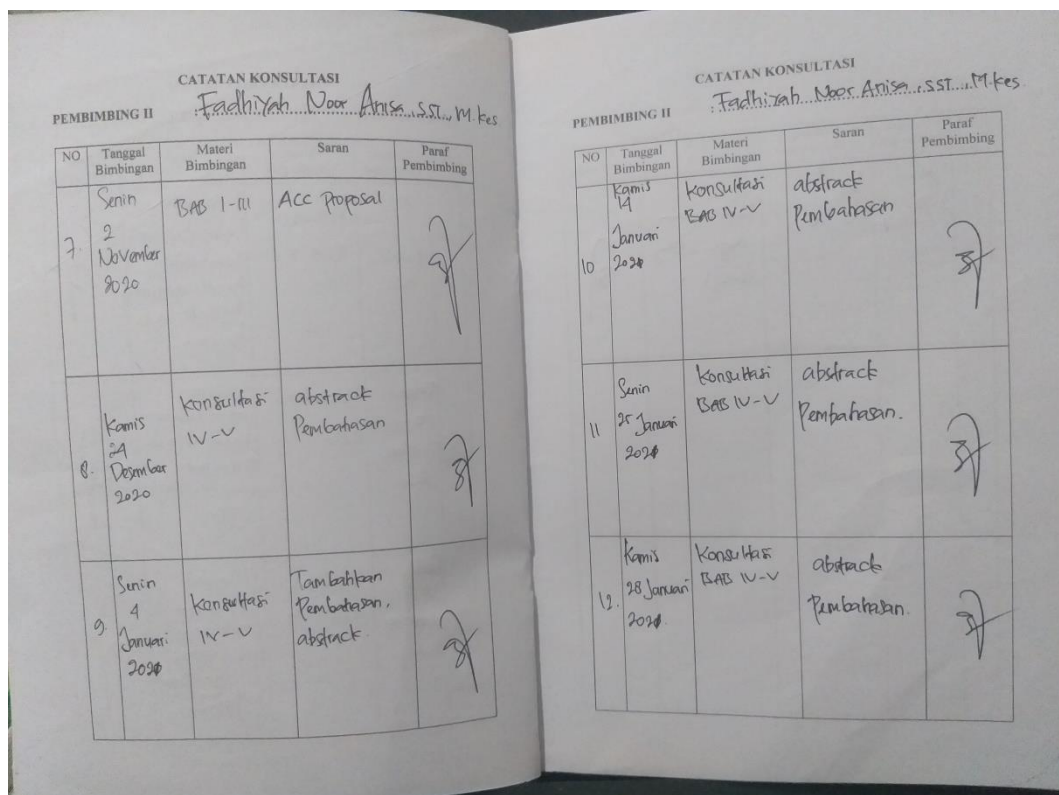 CATATAN KONSULTASI
PEMBIMBING II : Fadhiyah Noor Anisa, SST., M.kes
NO Tanggal Bimbingan Materi Bimbingan Saran Paraf Pembimbing
7. Senin 2 November 2020 BAB I-III ACC Proposal
8. Kamis 24 Desember 2020 Konsultasi IV-V abstrack Pembahasan
9. Senin 4 Januari 2021 Konsultasi IV-V Tambahkan Pembahasan, abstrack.
CATATAN KONSULTASI
PEMBIMBING II : Fadhiyah Noor Anisa, SST., M.kes
NO Tanggal Bimbingan Materi Bimbingan Saran Paraf Pembimbing
10 Kamis 14 Januari 2021 Konsultasi BAB IV-V abstrack Pembahasan
11 Senin 25 Januari 2021 Konsultasi BAB IV-V abstrack Pembahasan.
12. Kamis 28 Januari 2021 Konsultasi BAB IV-V abstrack Pembahasan.